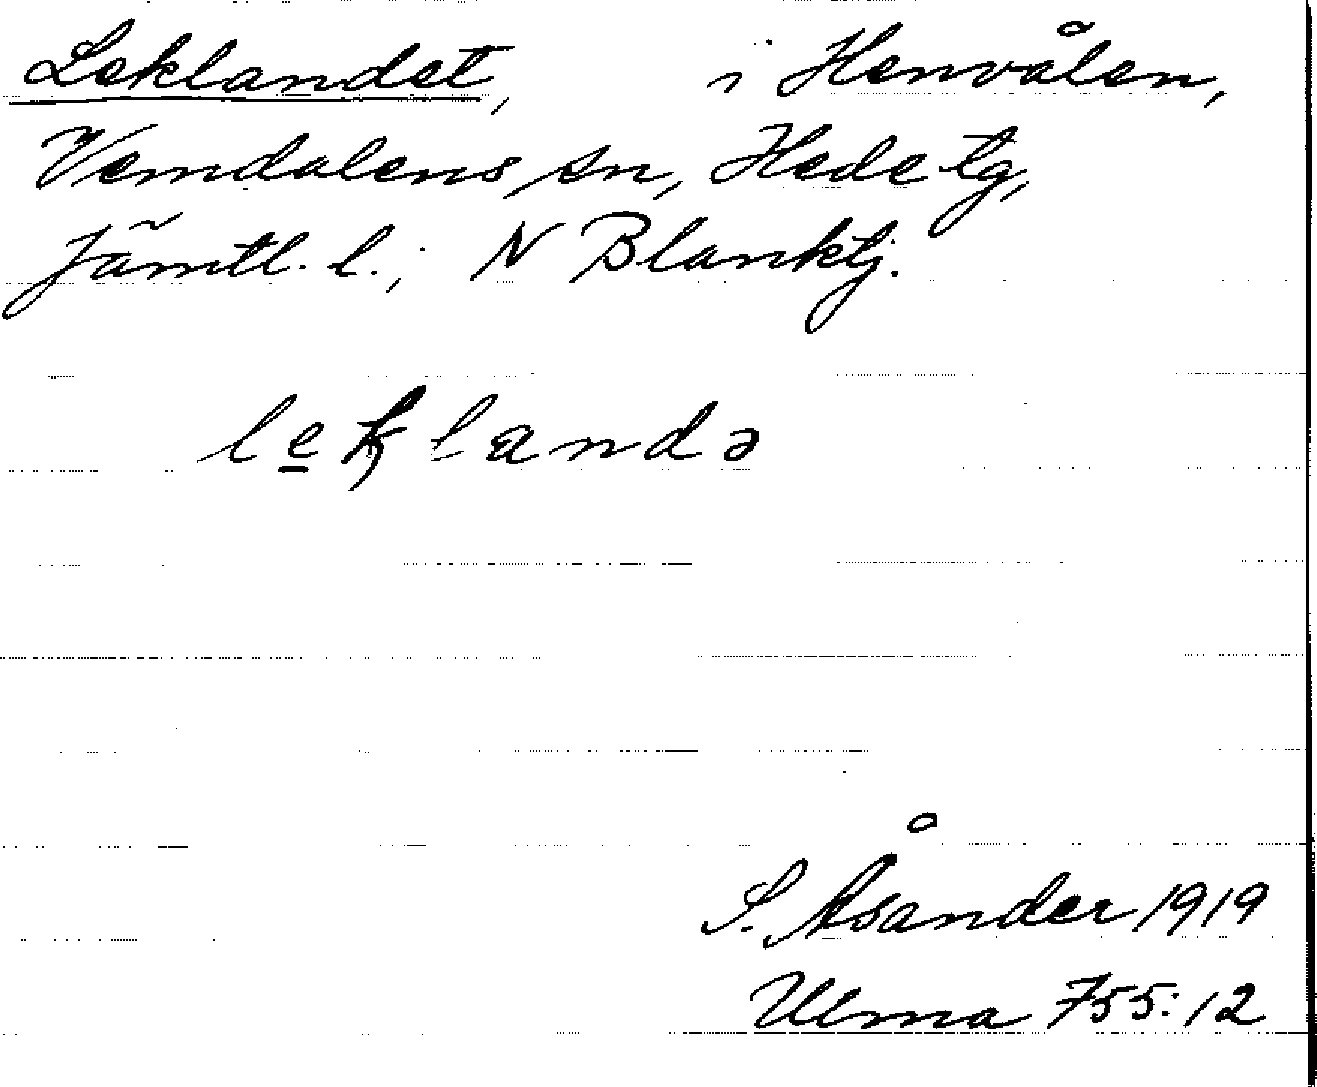 Leklandet, i Henvålen,
Vemdalens sn, Hede tg,
Jämtl. l.; N Blanktj.
leklandə
S. Åsander 1919
Ulma 755:12